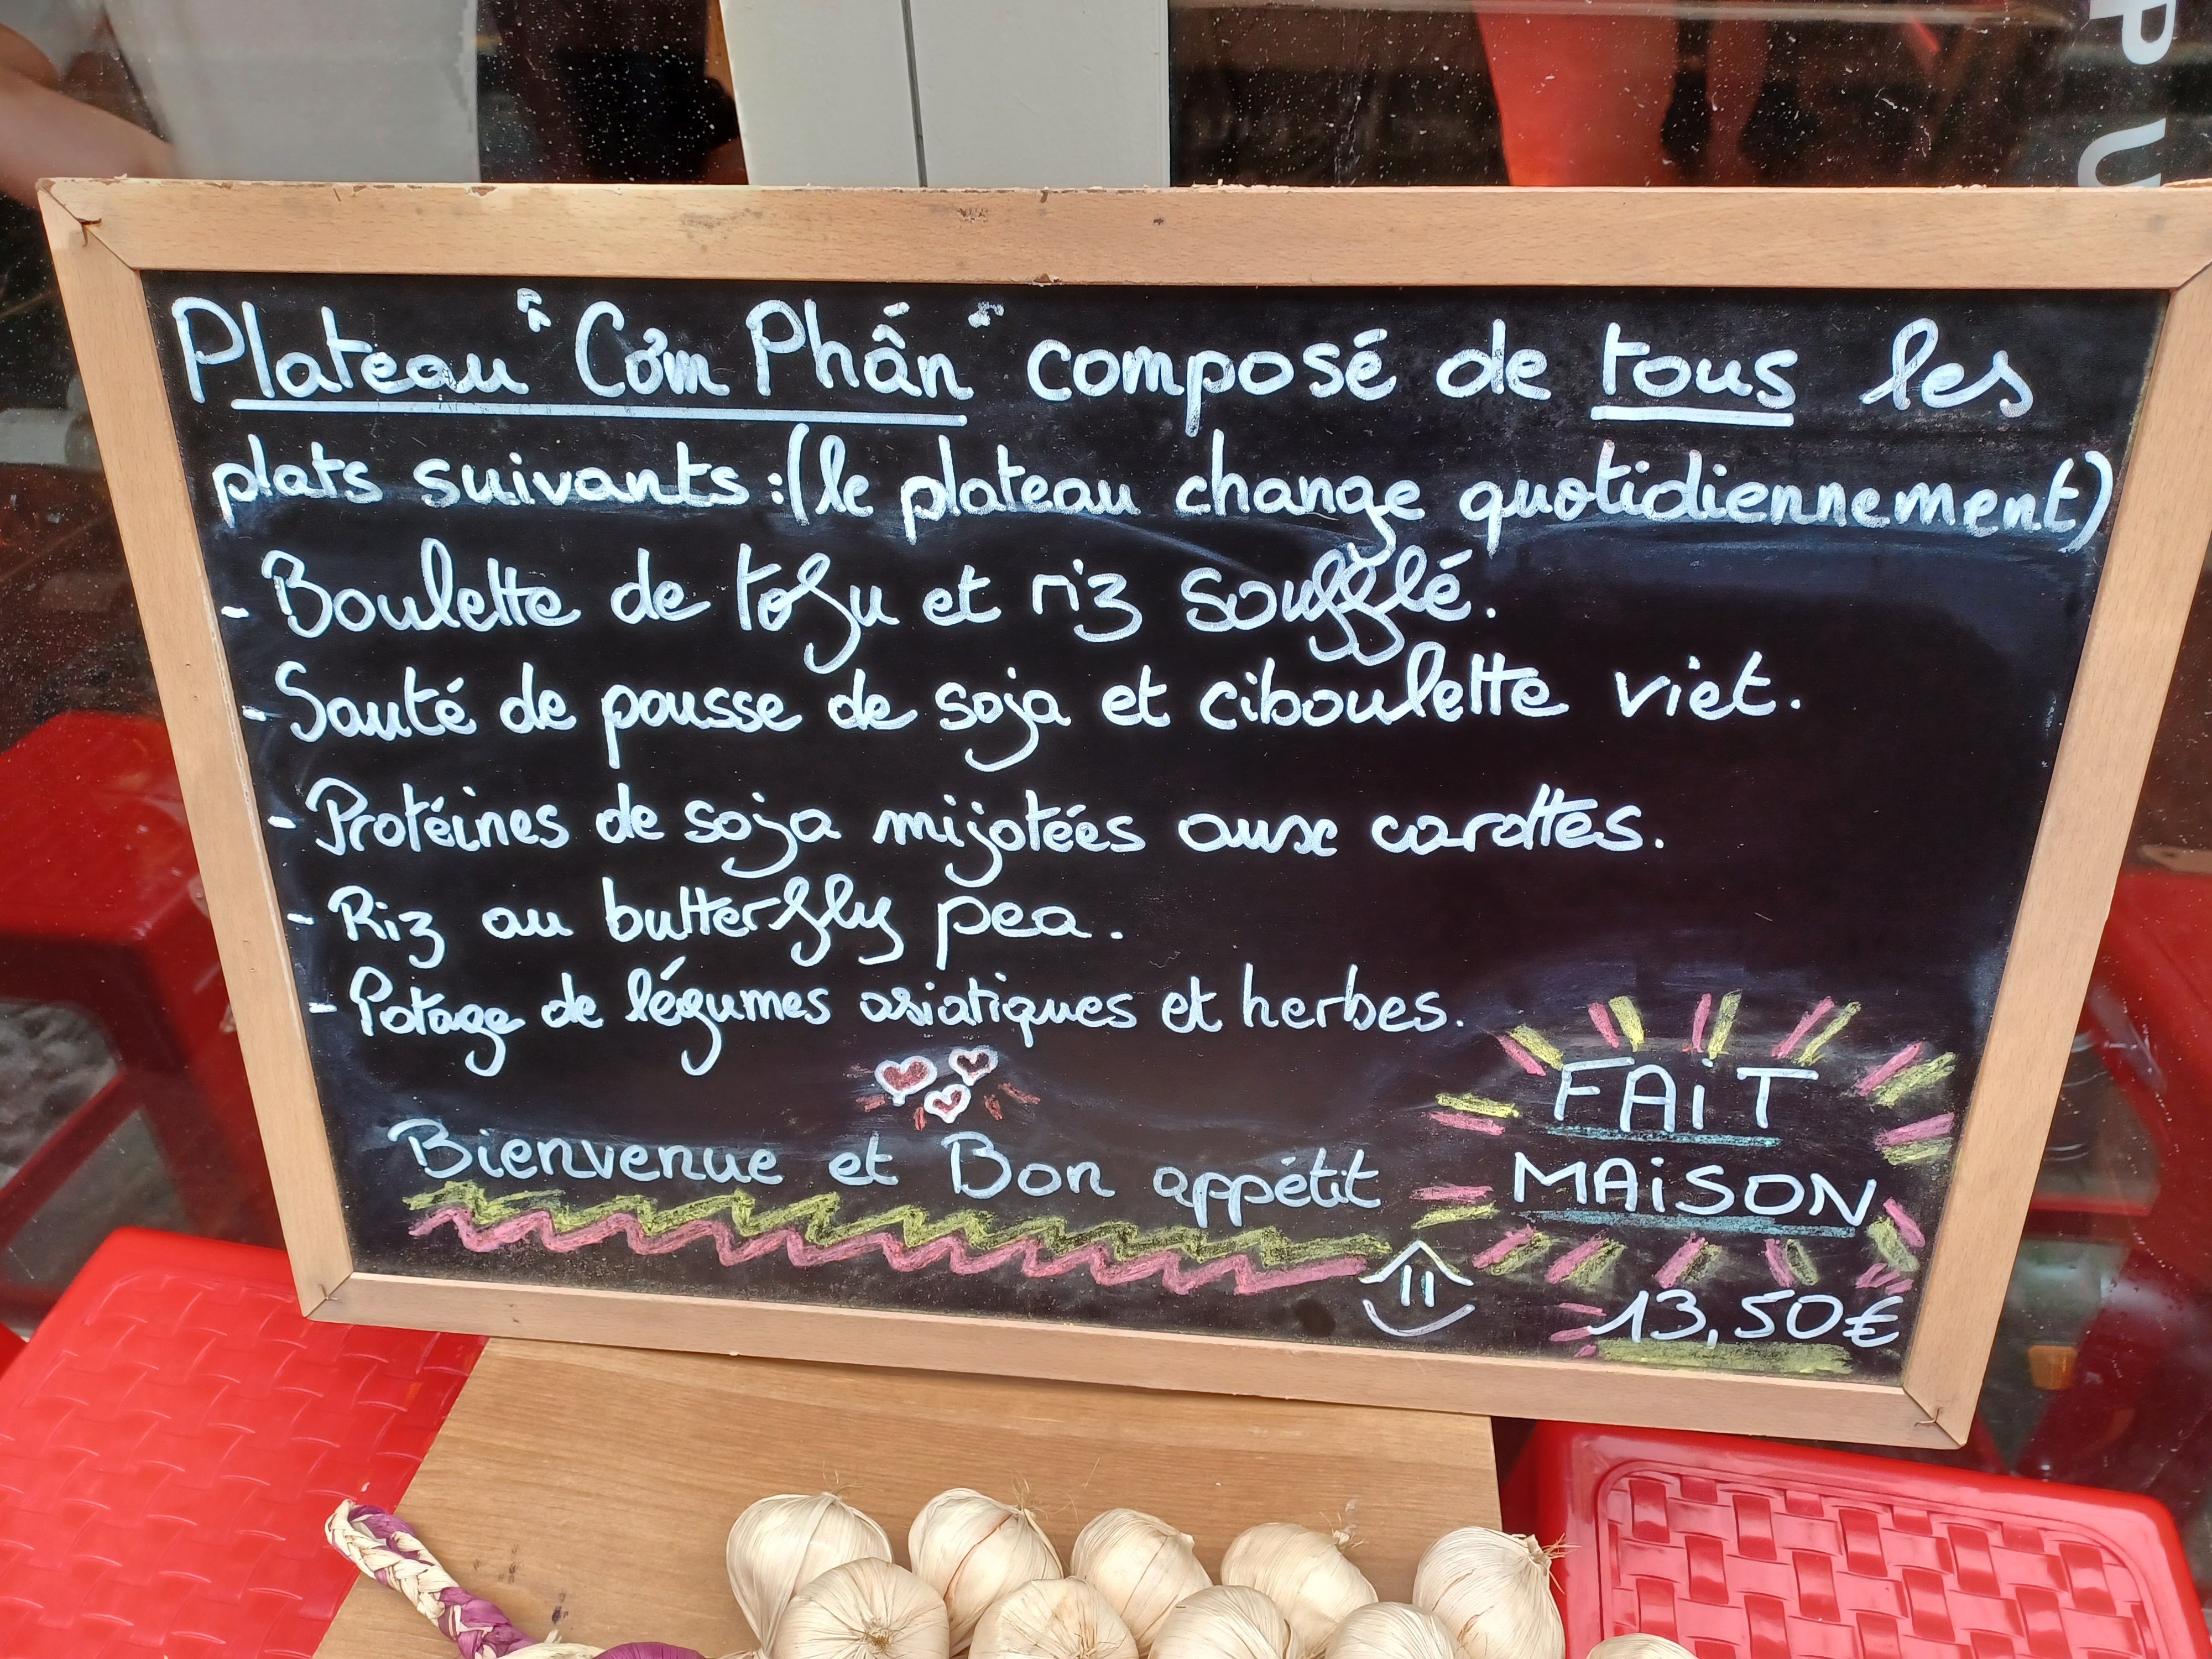 Plateau "Cơm Phần" composé de tous les
plats suivants : (le plateau change quotidiennement)
- Boulette de tofu et riz soufflé.
- Sauté de pousse de soja et ciboulette viet.
- Protéines de soja mijotées aux carottes.
- Riz au butterfly pea.
- Potage de légumes asiatiques et herbes.
Bienvenue et Bon appétit
FAiT
MAiSON
13,50€
PU